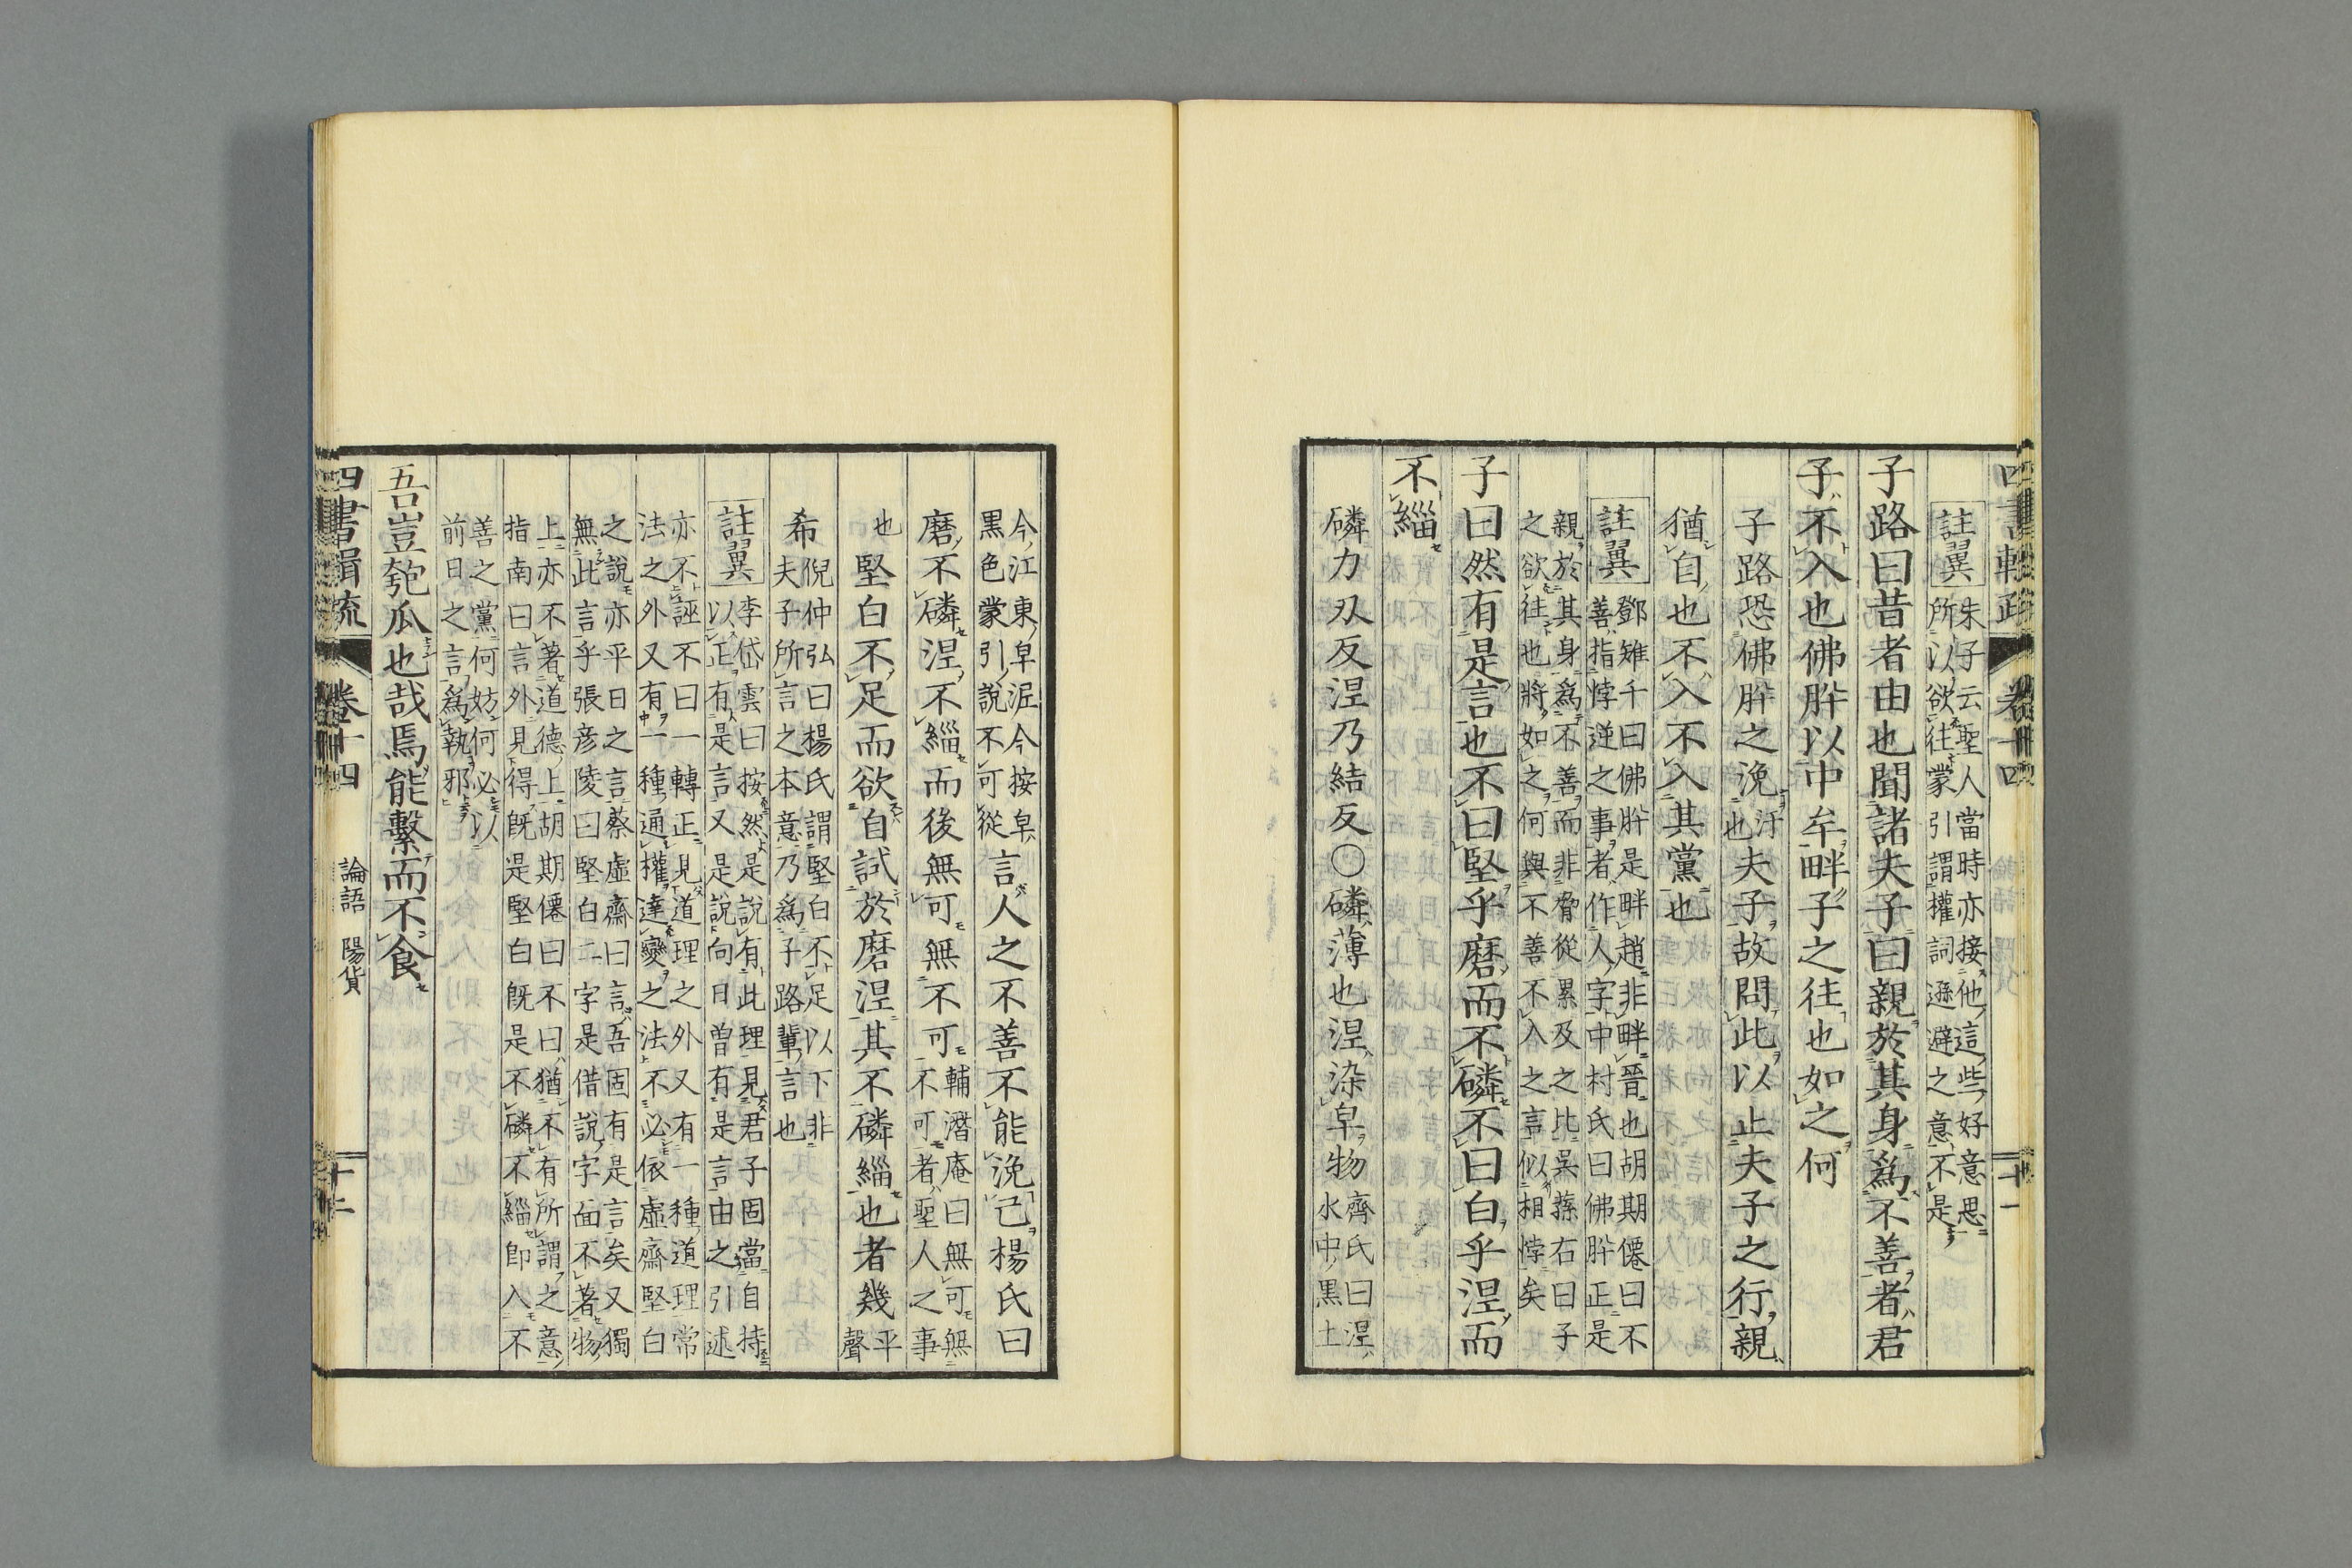 四書輯疏 卷十四 十一
註翼 朱子云聖人當時亦接他這些好意思
所以欲往蒙引謂權詞遜避之意不是
子路曰昔者由也聞諸夫子曰親於其身爲不善者君
子不入也佛肸以中牟畔子之往也如之何
子路恐佛肸之浼汙也夫子故問此以止夫子之行親
猶自也不入不入其黨也
註翼 鄧雉千曰佛肸是畔趙非畔晉也胡期僊曰不
善指悖逆之事者作人字中村氏曰佛肸正是
親於其身爲不善而非脅從累及之比吳蓀右曰子
之欲往也將如之何與不善不入之言似相悖矣
子曰然有是言也不曰堅乎磨而不磷不曰白乎涅而
不緇
磷力刃反涅乃結反○磷薄也涅染皁物 齊氏曰涅
水中黒土
今江東皁泥今按皁
黒色蒙引說不可從 言人之不善不能浼己楊氏曰
磨不磷涅不緇而後無可無不可 輔潛庵曰無可無
不可者聖人之事
也 堅白不足而欲自試於磨涅其不磷緇也者幾 平
聲
希 倪仲弘曰楊氏謂堅白不足以下非
夫子所言之本意乃爲子路輩言也
註翼 李岱雲曰按然是說有此理見君子固當自持
以正有是言又是說向日曾有是言由之引述
亦不誣不曰一轉正見道理之外又有一種道理常
法之外又有一種通權達變之法不必依虛齋堅白
之說亦平日之言蔡虛齋曰言吾固有是言矣又獨
無此言乎張彦陵曰堅白二字是借說字面不著物
上亦不著道德上胡期僊曰不曰猶不有所謂之意
指南曰言外見得旣是堅白旣是不磷不緇卽入不
善之黨何妨何必以
前日之言爲執邪
吾豈匏瓜也哉焉能繫而不食
四書輯疏 卷十四 論語 陽貨 十二